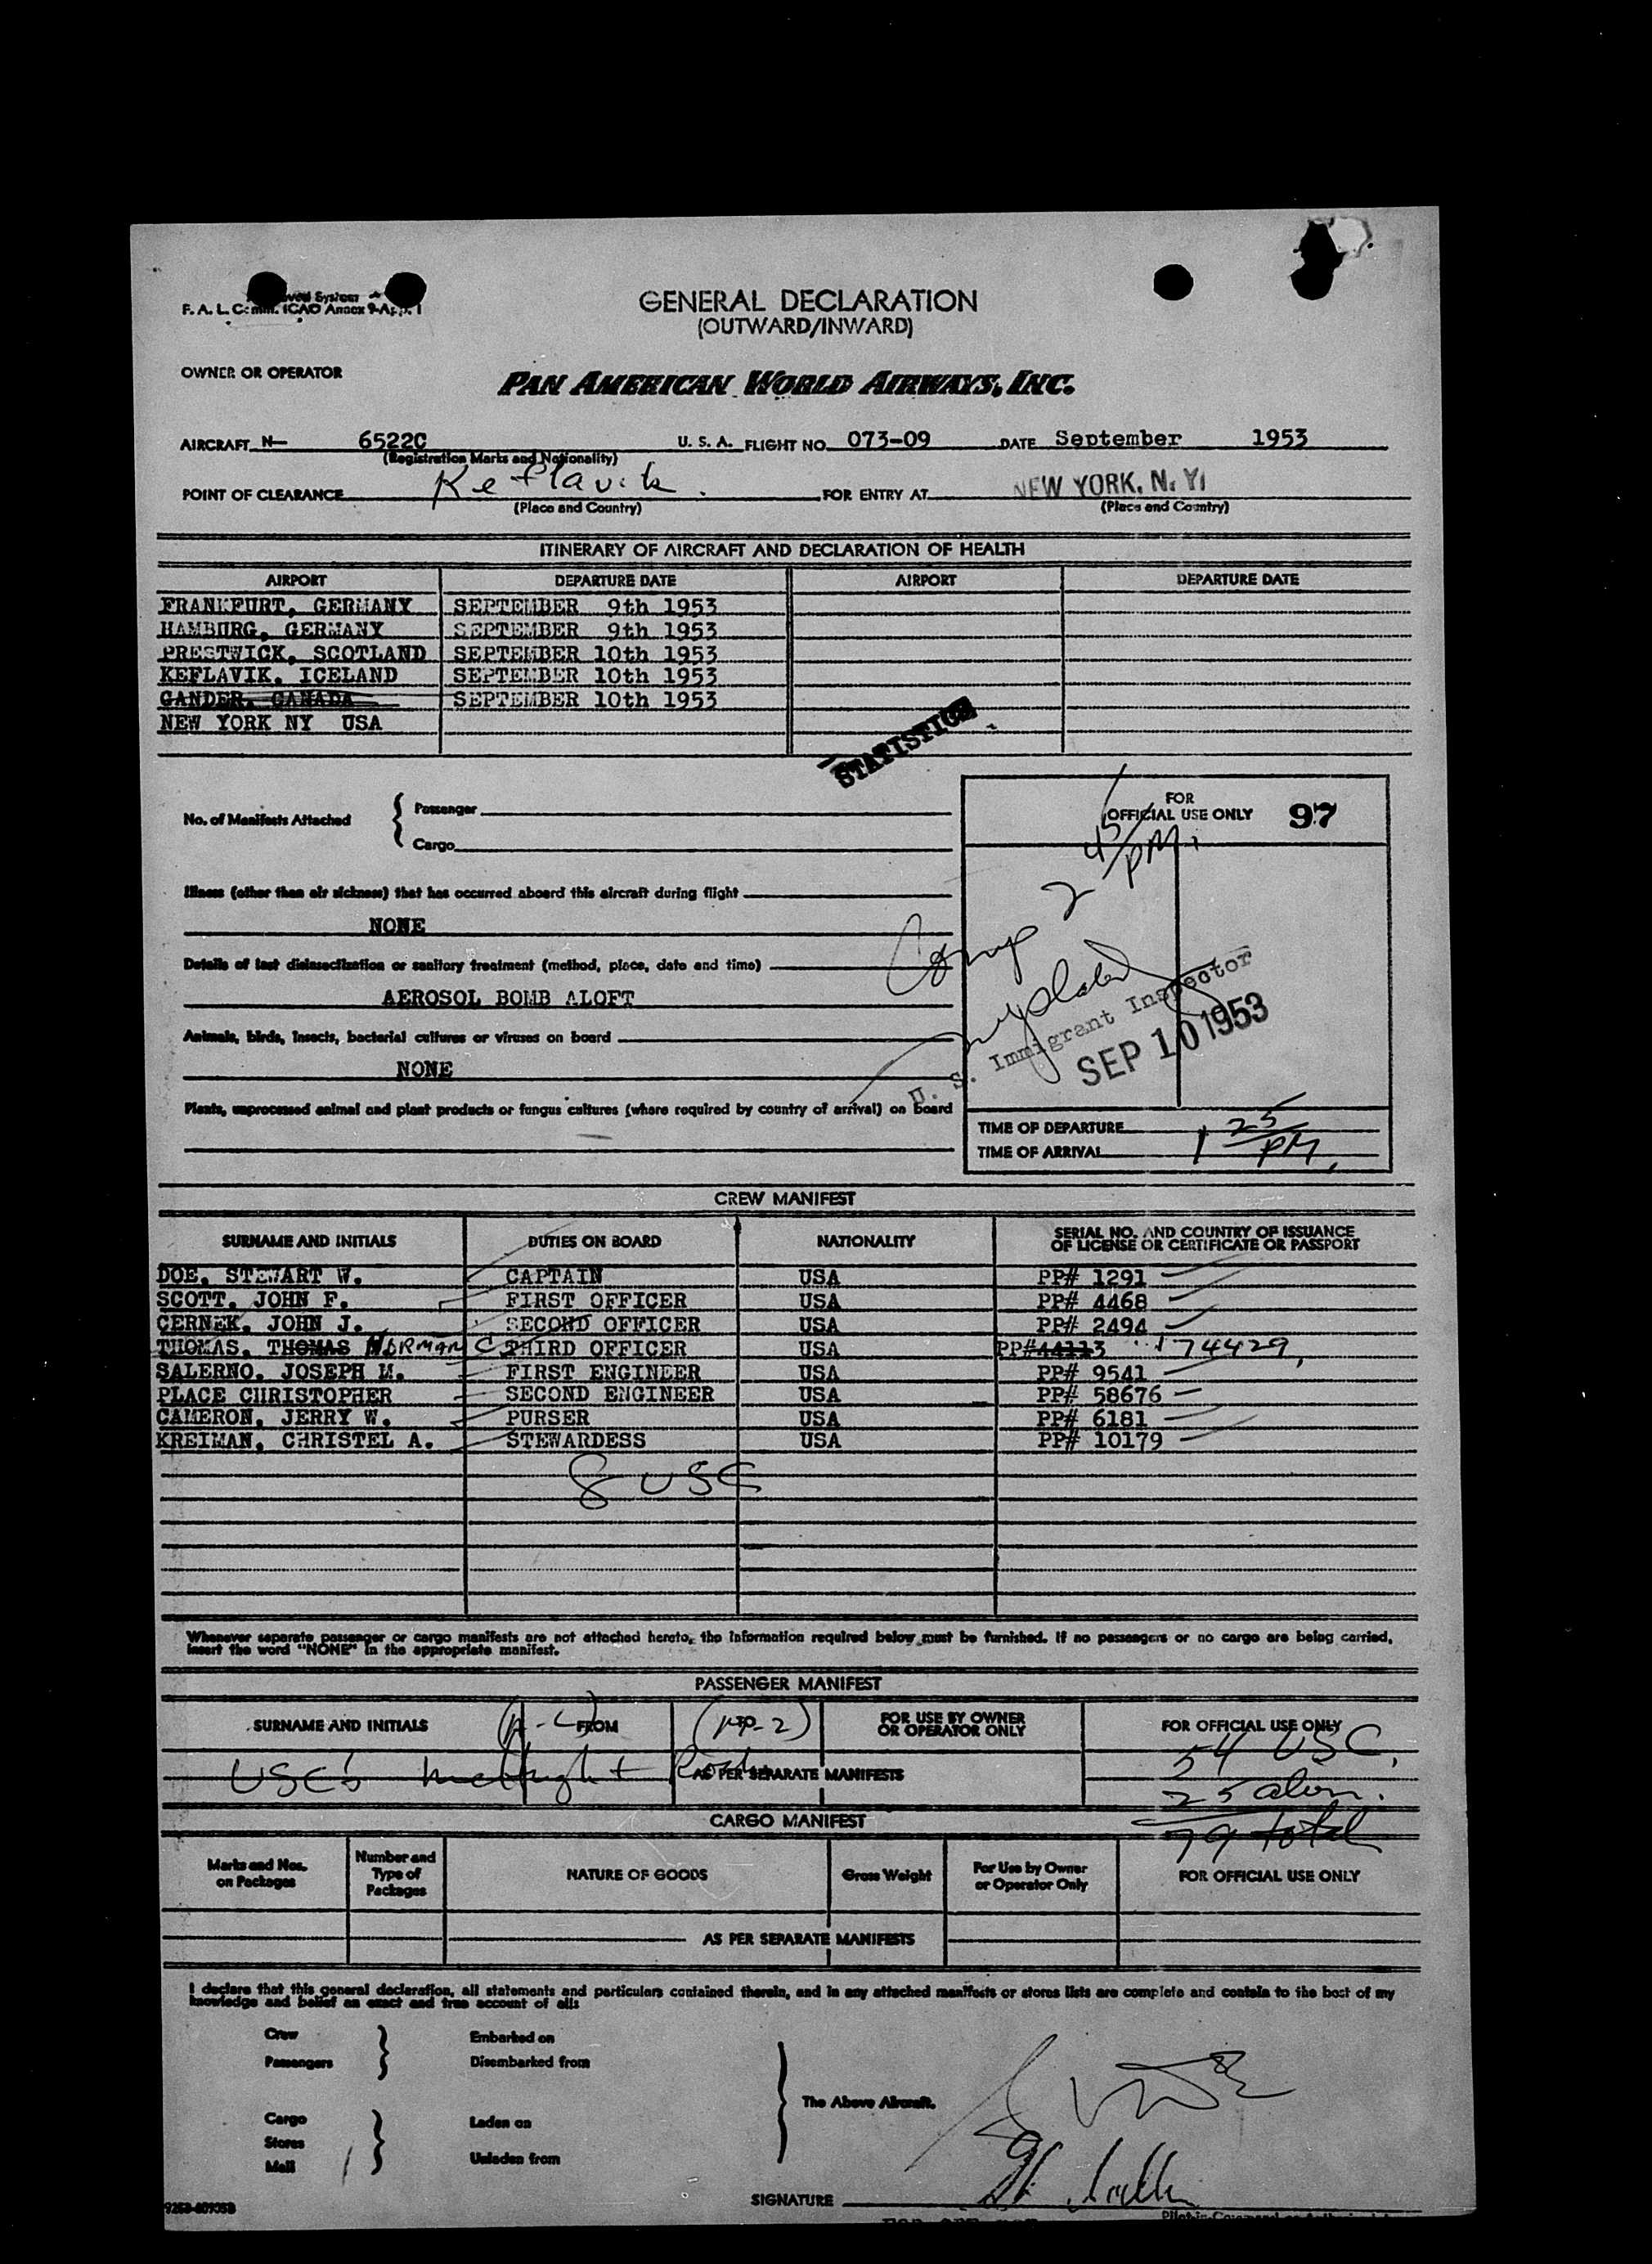 F. A. L. Comm. ICAO Annex 9-App. 1
GENERAL DECLARATION
(OUTWARD/INWARD)
OWNER OR OPERATOR
PAN AMERICAN WORLD AIRWAYS, INC.
AIRCRAFT N— 6522C U. S. A. FLIGHT NO. 073-09 DATE September 1953
(Registration Marks and Nationality)
POINT OF CLEARANCE Keflavik. FOR ENTRY AT NEW YORK, N. Y.
(Place and Country) (Place and Country)
ITINERARY OF AIRCRAFT AND DECLARATION OF HEALTH
AIRPORT DEPARTURE DATE AIRPORT DEPARTURE DATE
FRANKFURT, GERMANY SEPTEMBER 9th 1953
HAMBURG, GERMANY SEPTEMBER 9th 1953
PRESTWICK, SCOTLAND SEPTEMBER 10th 1953
KEFLAVIK, ICELAND SEPTEMBER 10th 1953
GANDER, CANADA SEPTEMBER 10th 1953
NEW YORK NY USA
STATISTICS
No. of Manifests Attached { Passenger
Cargo
FOR
OFFICIAL USE ONLY 97
Illness (other than air sickness) that has occurred aboard this aircraft during flight
NONE
Details of last disinsectization or sanitary treatment (method, place, date and time)
AEROSOL BOMB ALOFT
Animals, birds, insects, bacterial cultures or viruses on board
NONE
Plants, unprocessed animal and plant products or fungus cultures (where required by country of arrival) on board
Comp 2 45/PM.
U. S. Immigrant Inspector
SEP 10 1953
TIME OF DEPARTURE
TIME OF ARRIVAL 1 25 PM.
CREW MANIFEST
SURNAME AND INITIALS DUTIES ON BOARD NATIONALITY SERIAL NO. AND COUNTRY OF ISSUANCE
OF LICENSE OR CERTIFICATE OR PASSPORT
DOE, STEWART W. CAPTAIN USA PP# 1291
SCOTT, JOHN F. FIRST OFFICER USA PP# 4468
CERNEK, JOHN J. SECOND OFFICER USA PP# 2494
THOMAS, THOMAS NORMAN C THIRD OFFICER USA PP#44113 174429,
SALERNO, JOSEPH M. FIRST ENGINEER USA PP# 9541
PLACE CHRISTOPHER SECOND ENGINEER USA PP# 58676
CAMERON, JERRY W. PURSER USA PP# 6181
KREIMAN, CHRISTEL A. STEWARDESS USA PP# 10179
8 USC
Whenever separate passenger or cargo manifests are not attached hereto, the information required below must be furnished. If no passengers or no cargo are being carried,
insert the word "NONE" in the appropriate manifest.
PASSENGER MANIFEST
SURNAME AND INITIALS FROM FOR USE BY OWNER
OR OPERATOR ONLY FOR OFFICIAL USE ONLY
54 USC,
USC's AS PER SEPARATE MANIFESTS
25 alien.
79 total
CARGO MANIFEST
Marks and Nos.
on Packages Number and
Type of
Packages NATURE OF GOODS Gross Weight For Use by Owner
or Operator Only FOR OFFICIAL USE ONLY
AS PER SEPARATE MANIFESTS
I declare that this general declaration, all statements and particulars contained therein, and in any attached manifests or stores lists are complete and contain to the best of my
knowledge and belief an exact and true account of all:
Crew Embarked on
Passengers Disembarked from
The Above Aircraft.
Cargo Laden on
Stores
Mail Unladen from
SIGNATURE